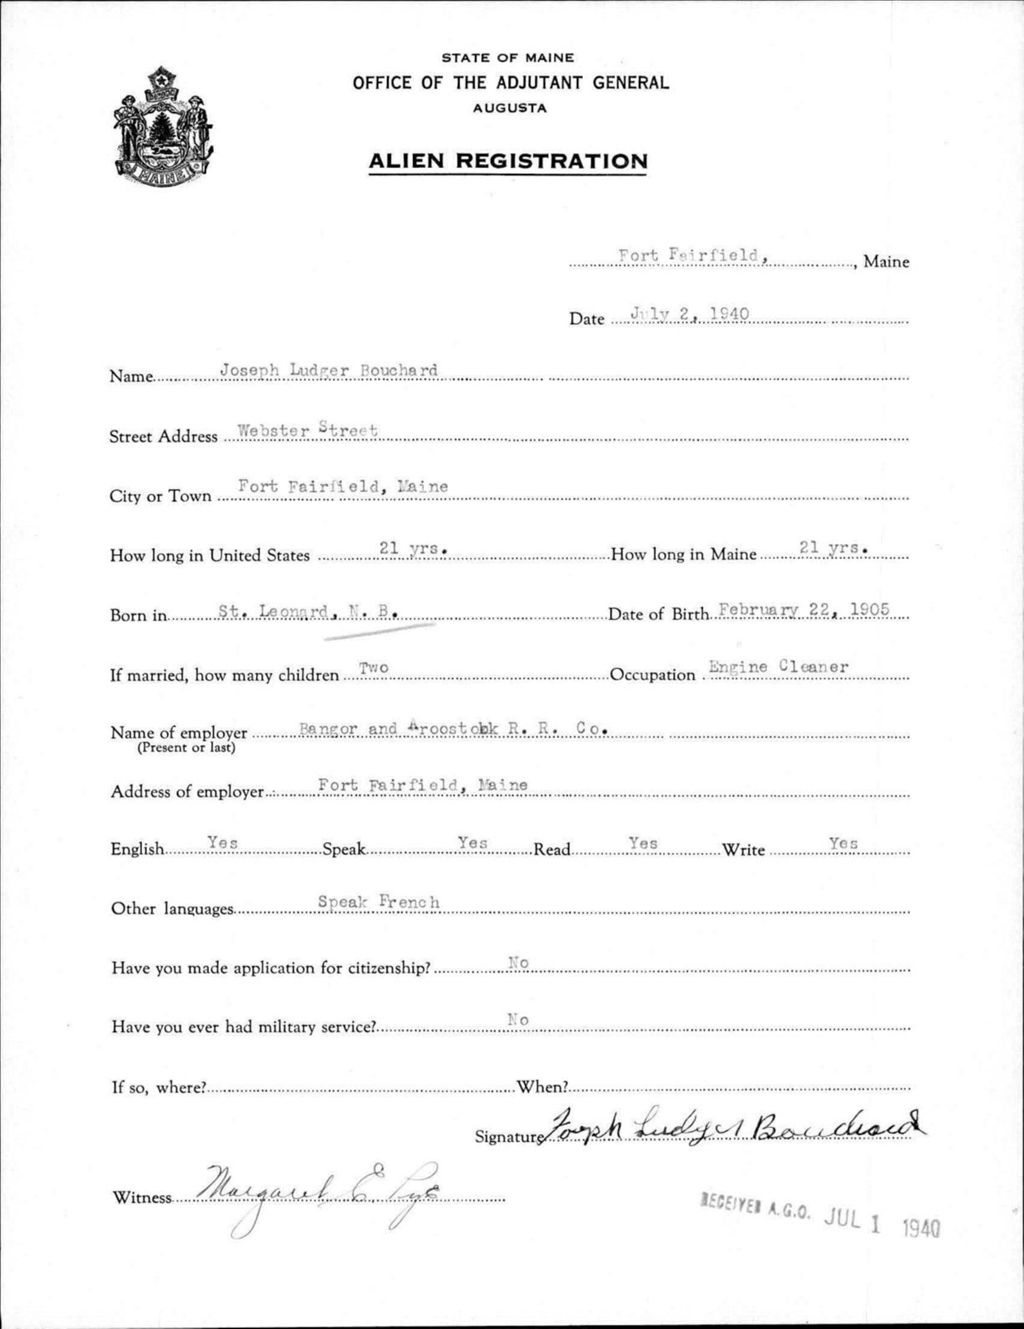 STATE OF MAINE
OFFICE OF THE ADJUTANT GENERAL
AUGUSTA
ALIEN REGISTRATION
MAINE
Fort Fairfield, , Maine
Date July 2, 1940
Name Joseph Ludger Bouchard
Street Address Webster Street
City or Town Fort Fairfield, Maine
How long in United States 21 yrs. How long in Maine 21 yrs.
Born in St. Leonard, N. B. Date of Birth February 22, 1905
If married, how many children Two Occupation Engine Cleaner
Name of employer Bangor and Aroostook R. R. Co.
(Present or last)
Address of employer Fort Fairfield, Maine
English Yes Speak Yes Read Yes Write Yes
Other languages Speak French
Have you made application for citizenship? No
Have you ever had military service? No
If so, where? When?
Signature Joseph Ludger Bouchard
Witness Margaret E. Pye
RECEIVED A.G.O. JUL 1 1940